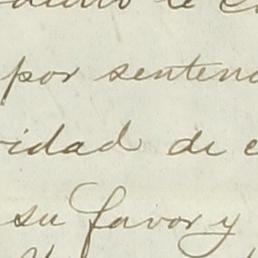 por sentenc
vidad de e
su favor y